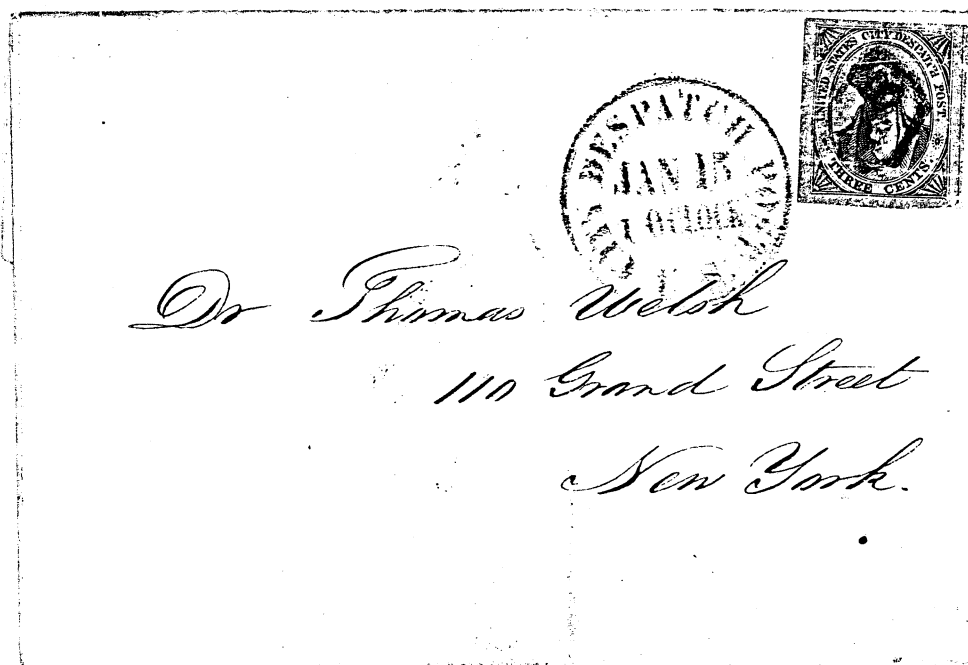 UNITED STATES CITY DESPATCH POST.
THREE CENTS
DESPATCH POST
JAN 15
Dr Thomas Welsh
110 Grand Street
New York.